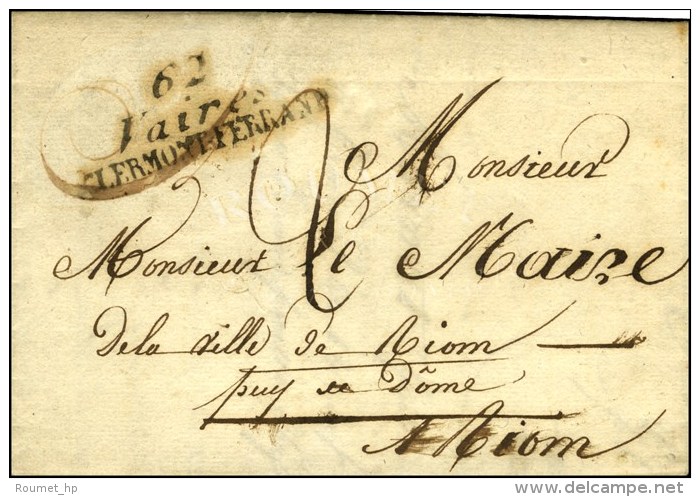 62
Vaires
CLERMONT-FERRAND
2
Monsieur
Monsieur Le Maire
De la ville de Riom
puy de Dôme
A Riom
Roumet_hp
delcampe.net